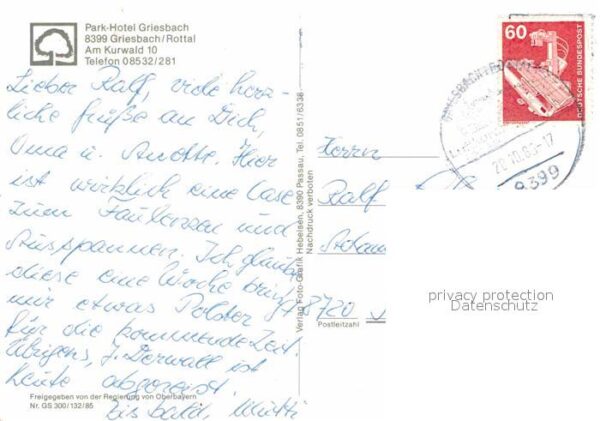 Park-Hotel Griesbach
8399 Griesbach/Rottal
Am Kurwald 10
Telefon 08532/281
Lieber Ralf, viele herz-
liche Grüße an Dich,
Oma u. Anette. Hier
ist wirklich eine Oase
zum Faulenzen und
Ausspannen. Ich glaube
diese eine Woche bringt
mir etwas Polster
für die kommende Zeit.
Übrigens, J. Derwall ist
heute abgereist.
Bis bald, Mutti
Freigegeben von der Regierung von Oberbayern
Nr. GS 300/132/85
Verlag Foto-Grafik Hebeisen, 8390 Passau, Tel. 0851/6338
Nachdruck verboten
60
DEUTSCHE BUNDESPOST
8399
Herrn
Ralf
8720
Postleitzahl
privacy protection
Datenschutz